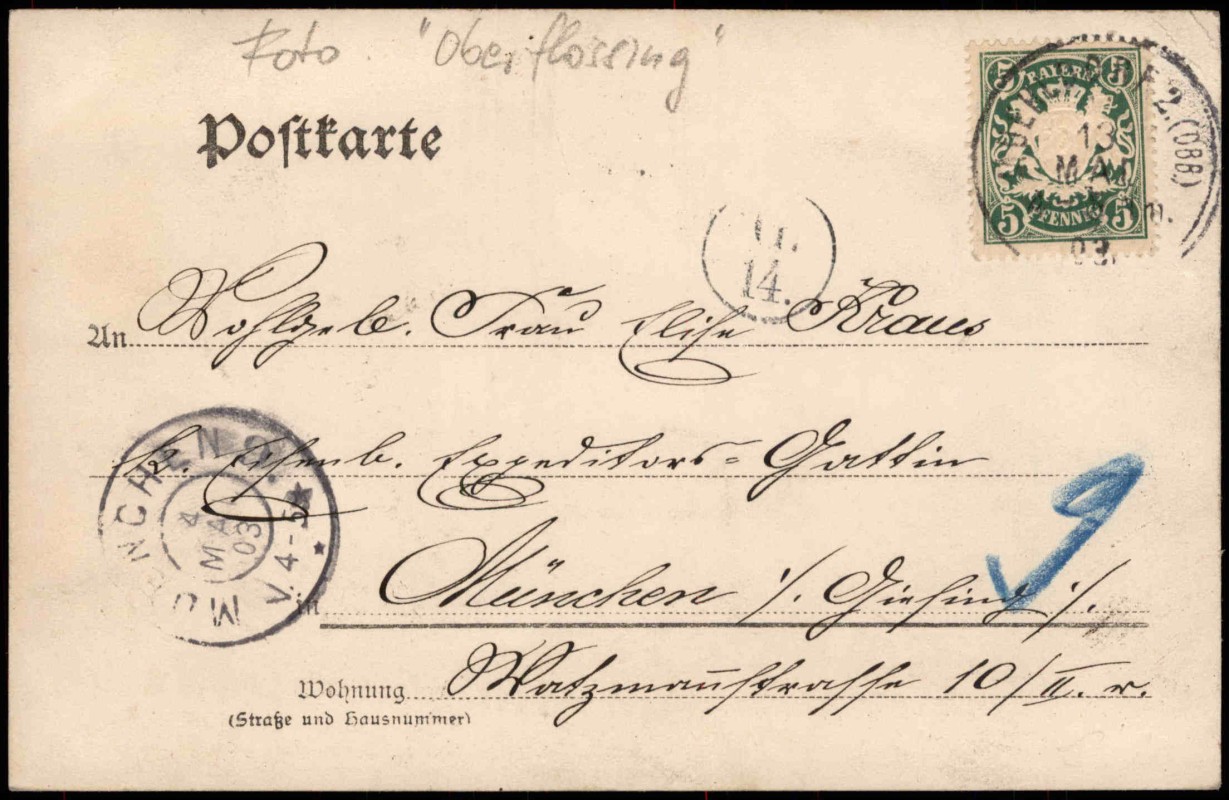 Foto "Oberflossing"
Postkarte
5 BAYERN 5
5 PFENNIG 5
13
MAI
03.
2.(OBB)
14.
An Wohlgeb. Frau Elise Kraus
k. Eisenb. Expeditors= Gattin
MÜNCHEN
4
MAI
03
V.4-5
9
in München ./. Giesing ./.
Wohnung Watzmannstrasse 10/II. r.
(Straße und Hausnummer)